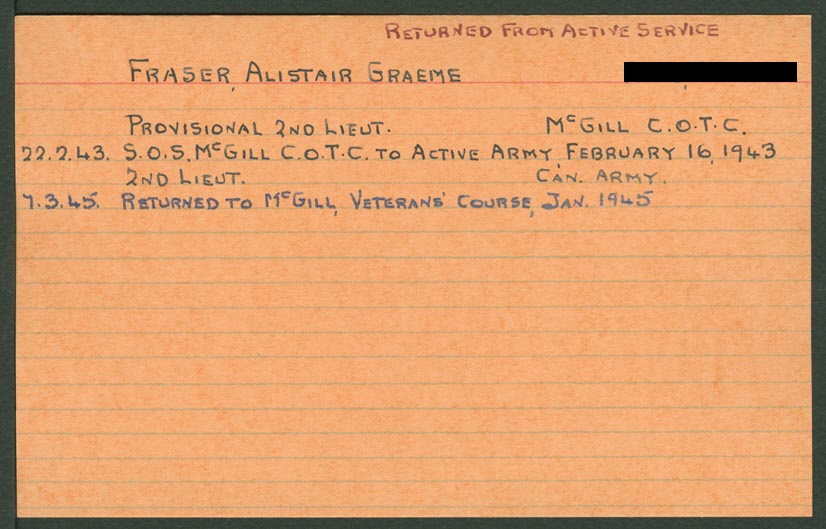 RETURNED FROM ACTIVE SERVICE
FRASER, ALISTAIR GRAEME
PROVISIONAL 2ND LIEUT. McGILL C.O.T.C.
22.2.43. S.O.S. McGILL C.O.T.C. TO ACTIVE ARMY, FEBRUARY 16, 1943
2ND LIEUT. CAN. ARMY.
7.3.45. RETURNED TO McGILL, VETERANS' COURSE, JAN. 1945